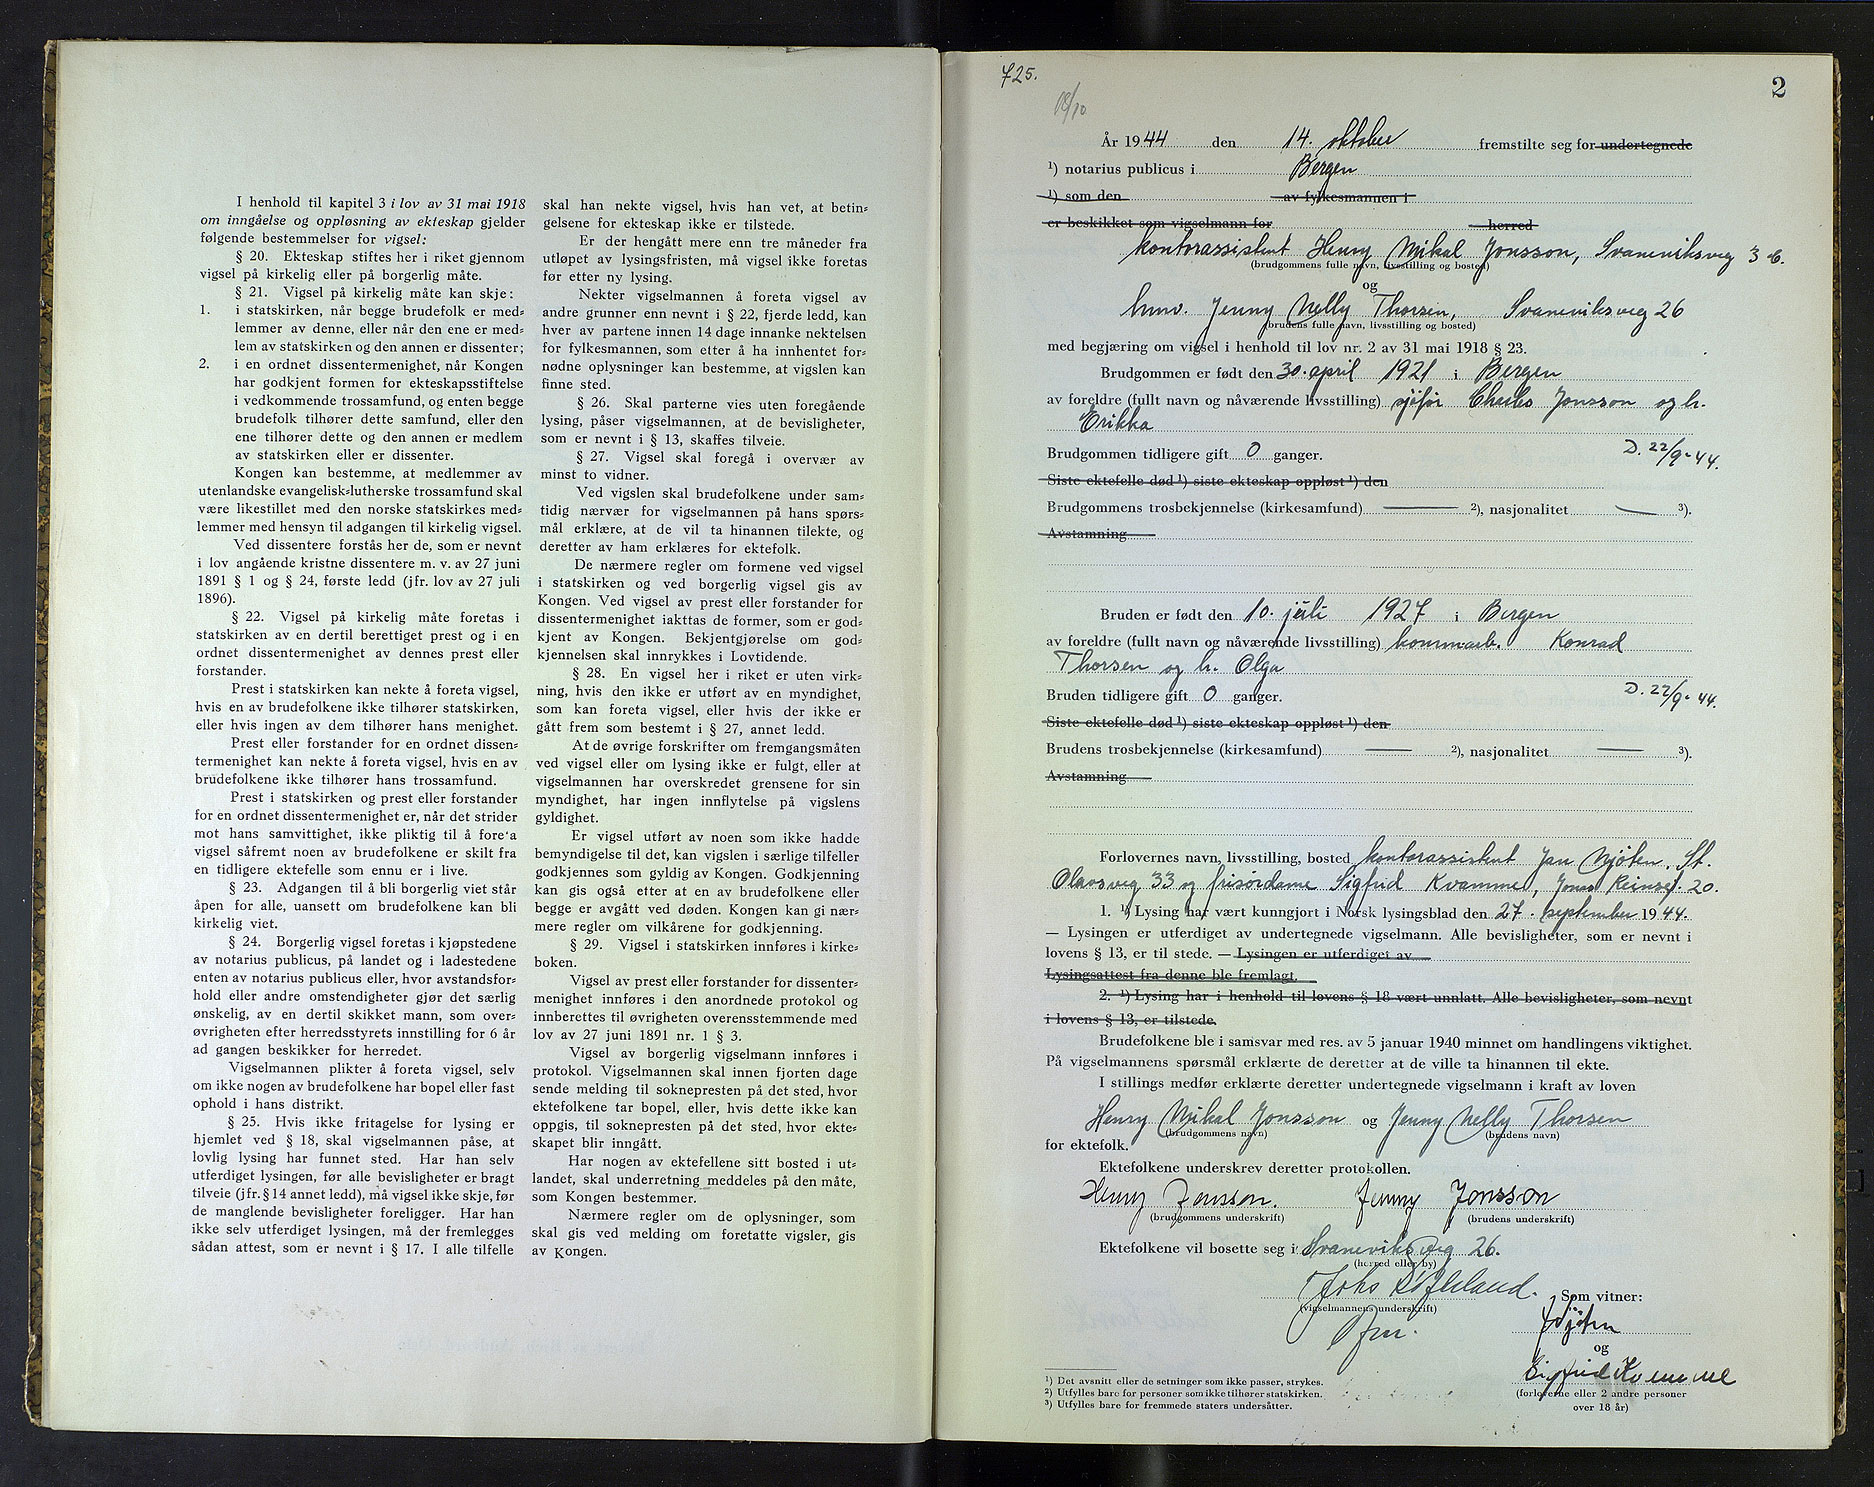 I henhold til kapitel 3 i lov av 31 mai 1918
om inngåelse og oppløsning av ekteskap gjelder
følgende bestemmelser for vigsel:
§ 20. Ekteskap stiftes her i riket gjennom
vigsel på kirkelig eller på borgerlig måte.
§ 21. Vigsel på kirkelig måte kan skje:
1. i statskirken, når begge brudefolk er med=
lemmer av denne, eller når den ene er med=
lem av statskirken og den annen er dissenter;
2. i en ordnet dissentermenighet, når Kongen
har godkjent formen for ekteskapsstiftelse
i vedkommende trossamfund, og enten begge
brudefolk tilhører dette samfund, eller den
ene tilhører dette og den annen er medlem
av statskirken eller er dissenter.
Kongen kan bestemme, at medlemmer av
utenlandske evangelisk=lutherske trossamfund skal
være likestillet med den norske statskirkes med=
lemmer med hensyn til adgangen til kirkelig vigsel.
Ved dissentere forstås her de, som er nevnt
i lov angående kristne dissentere m. v. av 27 juni
1891 § 1 og § 24, første ledd (jfr. lov av 27 juli
1896).
§ 22. Vigsel på kirkelig måte foretas i
statskirken av en dertil berettiget prest og i en
ordnet dissentermenighet av dennes prest eller
forstander.
Prest i statskirken kan nekte å foreta vigsel,
hvis en av brudefolkene ikke tilhører statskirken,
eller hvis ingen av dem tilhører hans menighet.
Prest eller forstander for en ordnet dissen=
termenighet kan nekte å foreta vigsel, hvis en av
brudefolkene ikke tilhører hans trossamfund.
Prest i statskirken og prest eller forstander
for en ordnet dissentermenighet er, når det strider
mot hans samvittighet, ikke pliktig til å fore'a
vigsel såfremt noen av brudefolkene er skilt fra
en tidligere ektefelle som ennu er i live.
§ 23. Adgangen til å bli borgerlig viet står
åpen for alle, uansett om brudefolkene kan bli
kirkelig viet.
§ 24. Borgerlig vigsel foretas i kjøpstedene
av notarius publicus, på landet og i ladestedene
enten av notarius publicus eller, hvor avstandsfor=
hold eller andre omstendigheter gjør det særlig
ønskelig, av en dertil skikket mann, som over=
øvrigheten efter herredsstyrets innstilling for 6 år
ad gangen beskikker for herredet.
Vigselmannen plikter å foreta vigsel, selv
om ikke nogen av brudefolkene har bopel eller fast
ophold i hans distrikt.
§ 25. Hvis ikke fritagelse for lysing er
hjemlet ved § 18, skal vigselmannen påse, at
lovlig lysing har funnet sted. Har han selv
utferdiget lysingen, før alle bevisligheter er bragt
tilveie (jfr. § 14 annet ledd), må vigsel ikke skje, før
de manglende bevisligheter foreligger. Har han
ikke selv utferdiget lysingen, må der fremlegges
sådan attest, som er nevnt i § 17. I alle tilfelle
skal han nekte vigsel, hvis han vet, at betin=
gelsene for ekteskap ikke er tilstede.
Er der hengått mere enn tre måneder fra
utløpet av lysingsfristen, må vigsel ikke foretas
før etter ny lysing.
Nekter vigselmannen å foreta vigsel av
andre grunner enn nevnt i § 22, fjerde ledd, kan
hver av partene innen 14 dage innanke nektelsen
for fylkesmannen, som etter å ha innhentet for=
nødne oplysninger kan bestemme, at vigslen kan
finne sted.
§ 26. Skal parterne vies uten foregående
lysing, påser vigselmannen, at de bevisligheter,
som er nevnt i § 13, skaffes tilveie.
§ 27. Vigsel skal foregå i overvær av
minst to vidner.
Ved vigslen skal brudefolkene under sam=
tidig nærvær for vigselmannen på hans spørs=
mål erklære, at de vil ta hinannen tilekte, og
deretter av ham erklæres for ektefolk.
De nærmere regler om formene ved vigsel
i statskirken og ved borgerlig vigsel gis av
Kongen. Ved vigsel av prest eller forstander for
dissentermenighet iakttas de former, som er god=
kjent av Kongen. Bekjentgjørelse om god=
kjennelsen skal innrykkes i Lovtidende.
§ 28. En vigsel her i riket er uten virk=
ning, hvis den ikke er utført av en myndighet,
som kan foreta vigsel, eller hvis der ikke er
gått frem som bestemt i § 27, annet ledd.
At de øvrige forskrifter om fremgangsmåten
ved vigsel eller om lysing ikke er fulgt, eller at
vigselmannen har overskredet grensene for sin
myndighet, har ingen innflytelse på vigslens
gyldighet.
Er vigsel utført av noen som ikke hadde
bemyndigelse til det, kan vigslen i særlige tilfeller
godkjennes som gyldig av Kongen. Godkjenning
kan gis også etter at en av brudefolkene eller
begge er avgått ved døden. Kongen kan gi nær=
mere regler om vilkårene for godkjenning.
§ 29. Vigsel i statskirken innføres i kirke=
boken.
Vigsel av prest eller forstander for dissenter=
menighet innføres i den anordnede protokol og
innberettes til øvrigheten overensstemmende med
lov av 27 juni 1891 nr. 1 § 3.
Vigsel av borgerlig vigselmann innføres i
protokol. Vigselmannen skal innen fjorten dage
sende melding til soknepresten på det sted, hvor
ektefolkene tar bopel, eller, hvis dette ikke kan
oppgis, til soknepresten på det sted, hvor ekte=
skapet blir inngått.
Har nogen av ektefellene sitt bosted i ut=
landet, skal underretning meddeles på den måte,
som Kongen bestemmer.
Nærmere regler om de oplysninger, som
skal gis ved melding om foretatte vigsler, gis
av Kongen.
725.
2
18/10
År 1944 den 14. oktober fremstilte seg for undertegnede
¹) notarius publicus i Bergen
¹) som den av fylkesmannen i
er beskikket som vigselmann for herred
kontorassistent Henry Mikal Jonsson, Svaneviksveg 3 b.
(brudgommens fulle navn, livsstilling og bosted)
og
hmv. Jenny Nelly Thorsen, Svaneviksveg 26
(brudens fulle navn, livsstilling og bosted)
med begjæring om vigsel i henhold til lov nr. 2 av 31 mai 1918 § 23.
Brudgommen er født den 30. april 1921 i Bergen
av foreldre (fullt navn og nåværende livsstilling) sjåfør Charles Jonsson og h.
Erikka
Brudgommen tidligere gift 0 ganger. D. 22/9-44.
Siste ektefelle død ¹) siste ekteskap oppløst ¹) den
Brudgommens trosbekjennelse (kirkesamfund) — ²), nasjonalitet — ³).
Avstamning
Bruden er født den 10. juli 1927 i Bergen
av foreldre (fullt navn og nåværende livsstilling) kommarb. Konrad
Thorsen og h. Olga
Bruden tidligere gift 0 ganger. D. 22/9-44.
Siste ektefelle død ¹) siste ekteskap oppløst ¹) den
Brudens trosbekjennelse (kirkesamfund) — ²), nasjonalitet — ³).
Avstamning
Forlovernes navn, livsstilling, bosted kontorassistent Jan Mjöten, St.
Olavsveg 33 og frisördame Sigfrid Kvamme, Jonas Reinsg. 20.
1. ¹) Lysing har vært kunngjort i Norsk lysingsblad den 27. september 1944.
— Lysingen er utferdiget av undertegnede vigselmann. Alle bevisligheter, som er nevnt i
lovens § 13, er til stede. — Lysingen er utferdiget av
Lysingsattest fra denne ble fremlagt.
2. ¹) Lysing har i henhold til lovens § 18 vært unnlatt. Alle bevisligheter, som nevnt
i lovens § 13, er tilstede.
Brudefolkene ble i samsvar med res. av 5 januar 1940 minnet om handlingens viktighet.
På vigselmannens spørsmål erklærte de deretter at de ville ta hinannen til ekte.
I stillings medfør erklærte deretter undertegnede vigselmann i kraft av loven
Henry Mikal Jonsson og Jenny Nelly Thorsen
(brudgommens navn) (brudens navn)
for ektefolk.
Ektefolkene underskrev deretter protokollen.
Henry Jonsson. Jenny Jonsson
(brudgommens underskrift) (brudens underskrift)
Ektefolkene vil bosette seg i Svaneviksveg 26.
(herred eller by)
Som vitner:
(vigselmannens underskrift)
og
Sigfrid Kvamme
(forloverne eller 2 andre personer
over 18 år)
¹) Det avsnitt eller de setninger som ikke passer, strykes.
²) Utfylles bare for personer som ikke tilhører statskirken.
³) Utfylles bare for fremmede staters undersåtter.